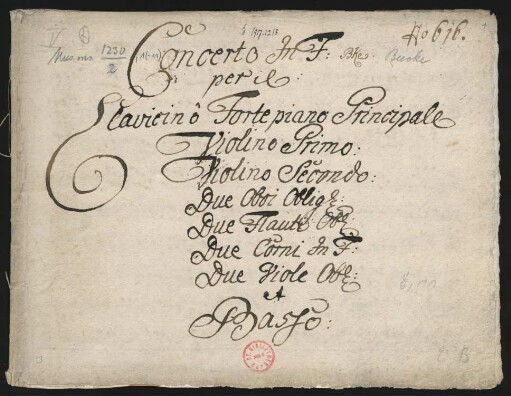 No 616.
Mus. ms. 1230/2
Concerto In F:
per il:
Clavicino ô Fortepiano Principale
Violino Primo:
Violino Secondo:
Due Oboi Oblig:
Due Flauti Obl:
Due Corni In F:
Due Viole Obl:
et
Basso: